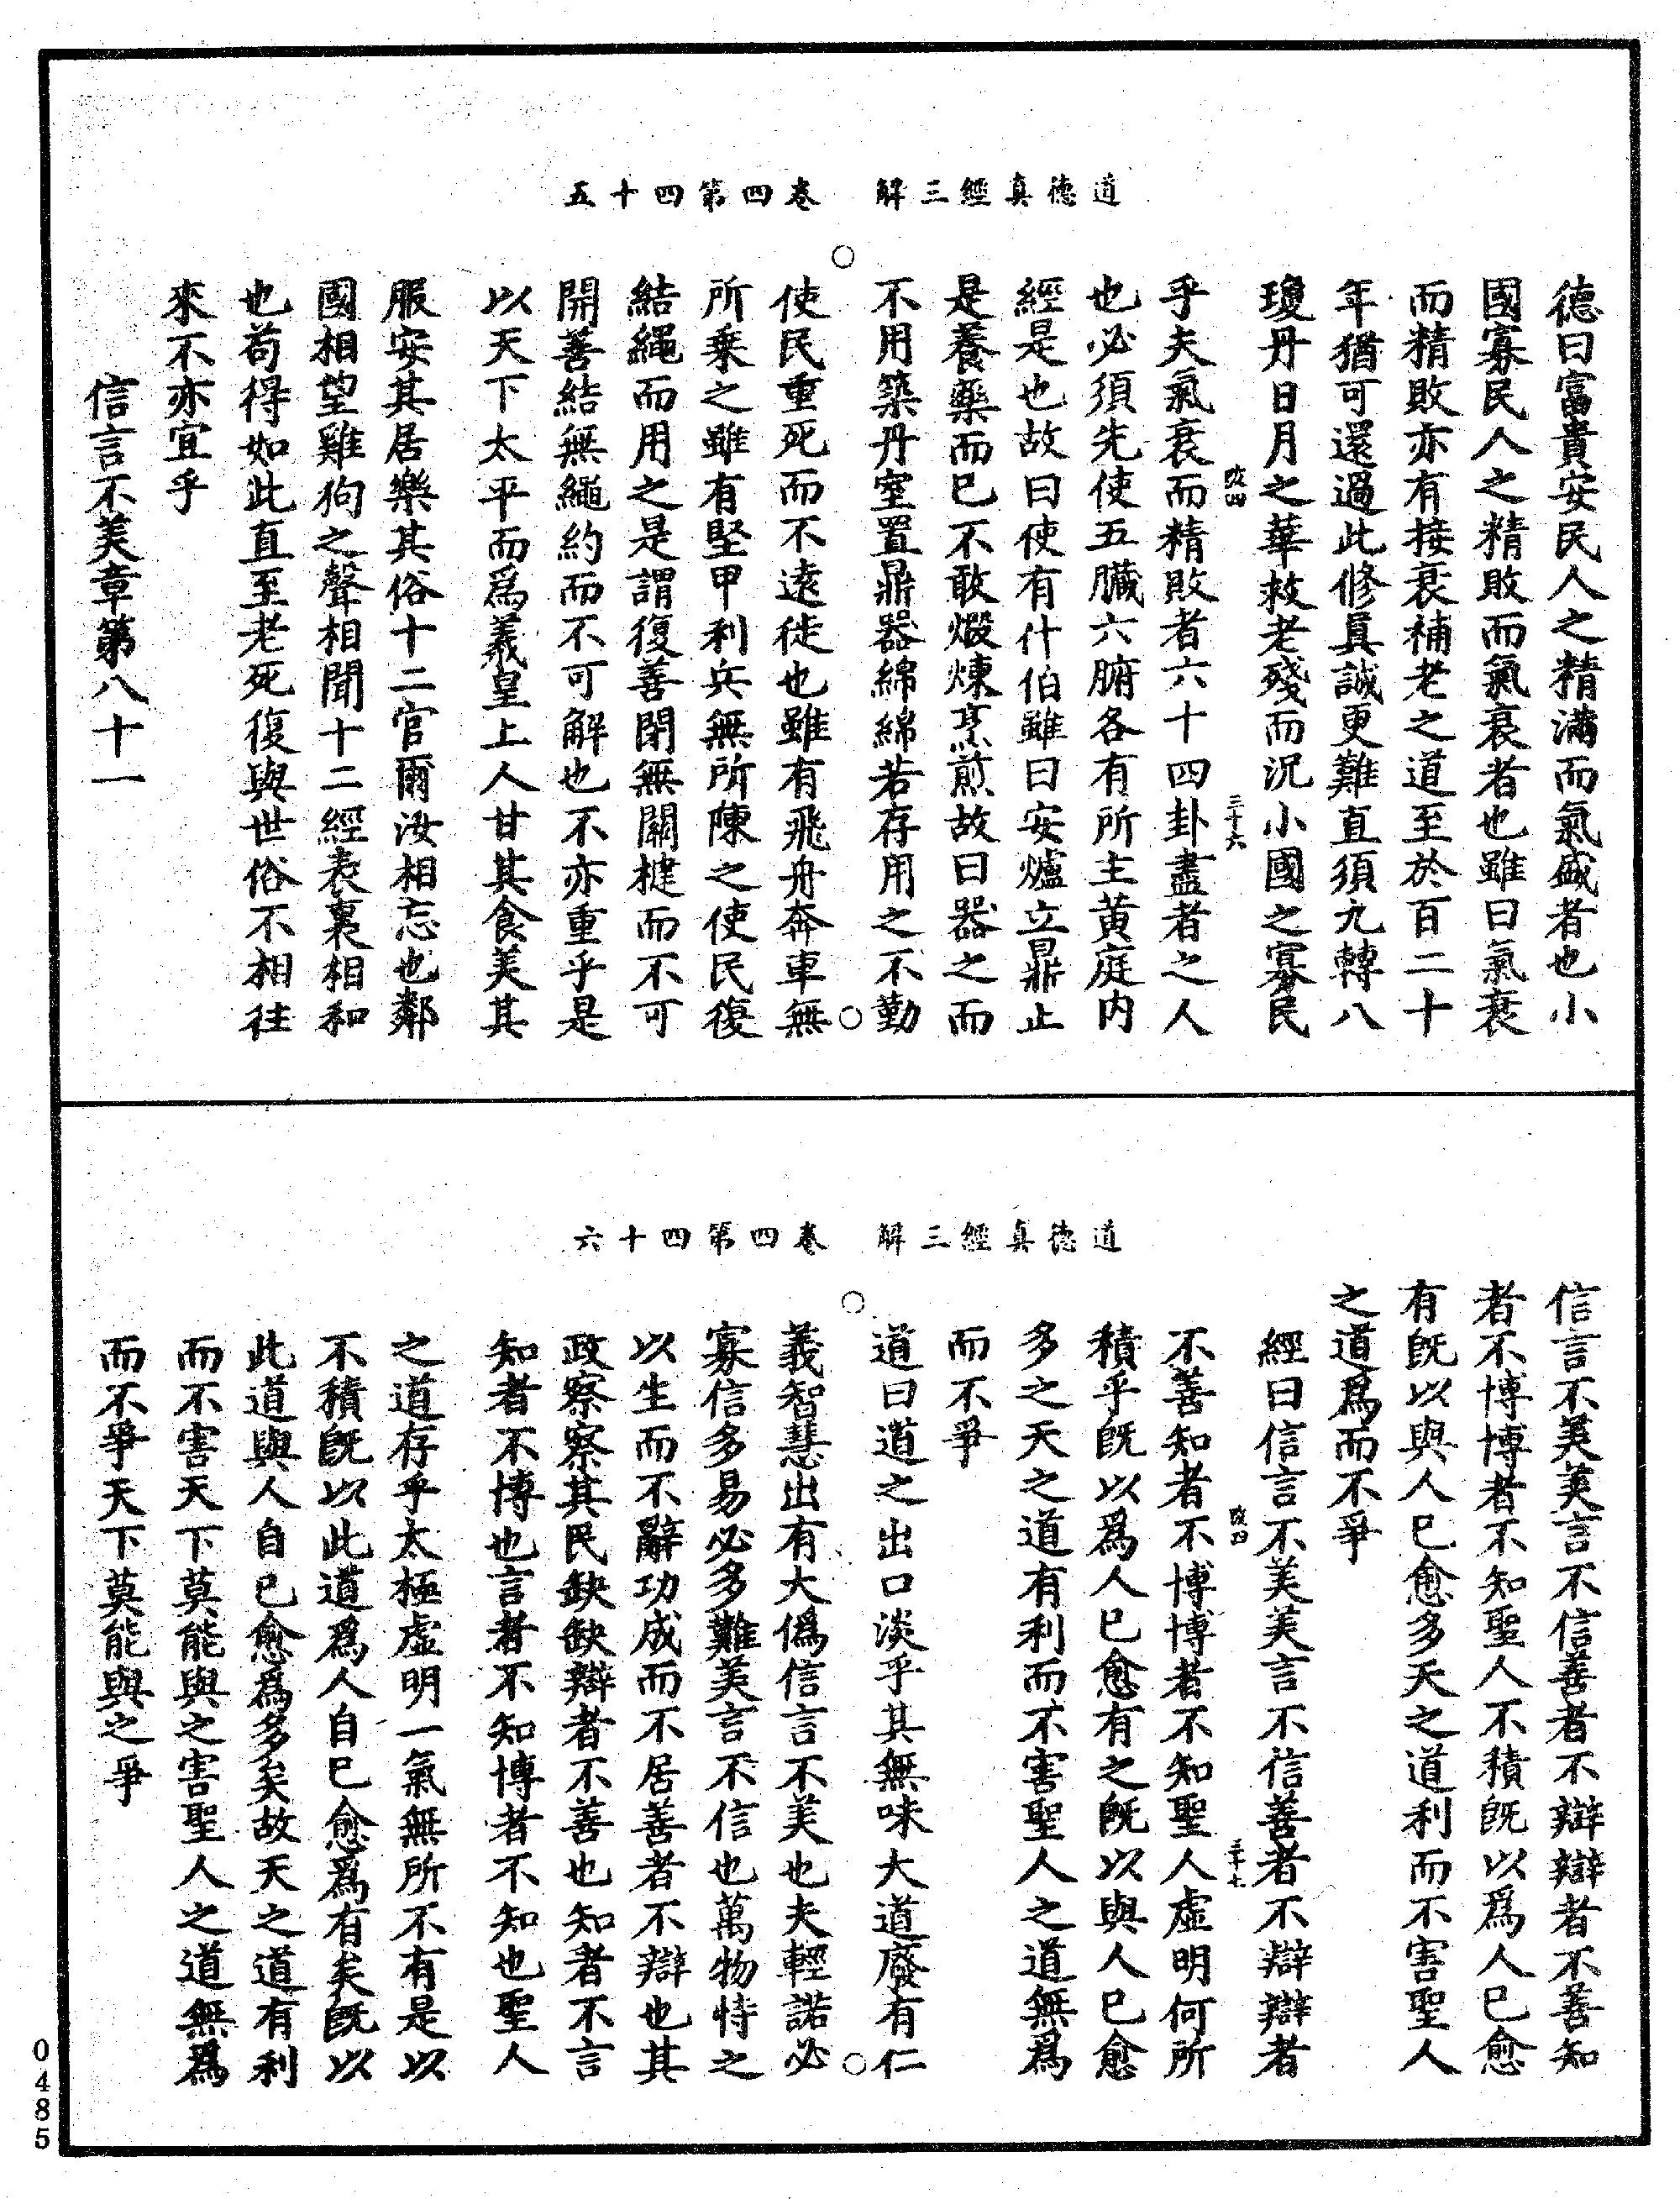 道德真經三解　卷四第四十五
德曰富貴安民人之精滿而氣盛者也小
國寡民人之精敗而氣衰者也雖曰氣衰
而精敗亦有接衰補老之道至於百二十
年猶可還過此修真誠更難直須九轉八
瓊丹日月之華救老殘而況小國之寡民
改四　三十六
乎夫氣衰而精敗者六十四卦盡者之人
也必須先使五臟六腑各有所主黃庭内
經是也故曰使有什伯雖曰安爐立鼎止
是養藥而已不敢煅煉烹煎故曰器之而
不用築丹室置鼎器綿綿若存用之不勤
使民重死而不遠徙也雖有飛舟奔車無
所乗之雖有堅甲利兵無所陳之使民復
結繩而用之是謂復善閉無關楗而不可
開善結無繩約而不可解也不亦重乎是
以天下太平而爲羲皇上人甘其食美其
服安其居樂其俗十二官爾汝相忘也鄰
國相望雞狗之聲相聞十二經表裏相和
也苟得如此直至老死復與世俗不相往
來不亦宜乎
信言不美章第八十一
道德真經三解　卷四第四十六
信言不美美言不信善者不辯辯者不善知
者不博博者不知聖人不積既以爲人已愈
有既以與人已愈多天之道利而不害聖人
之道爲而不爭
經曰信言不美美言不信善者不辯辯者
改四　三十七
不善知者不博博者不知聖人虛明何所
積乎既以爲人已愈有之既以與人已愈
多之天之道有利而不害聖人之道無爲
而不爭
道曰道之出口淡乎其無味大道廢有仁
義智慧出有大僞信言不美也夫輕諾必
寡信多易必多難美言不信也萬物恃之
以生而不辭功成而不居善者不辯也其
政察察其民缺缺辯者不善也知者不言
知者不博也言者不知博者不知也聖人
之道存乎太極虛明一氣無所不有是以
不積既以此道爲人自已愈爲有矣既以
此道與人自已愈爲多矣故天之道有利
而不害天下莫能與之害聖人之道無爲
而不爭天下莫能與之爭
0485